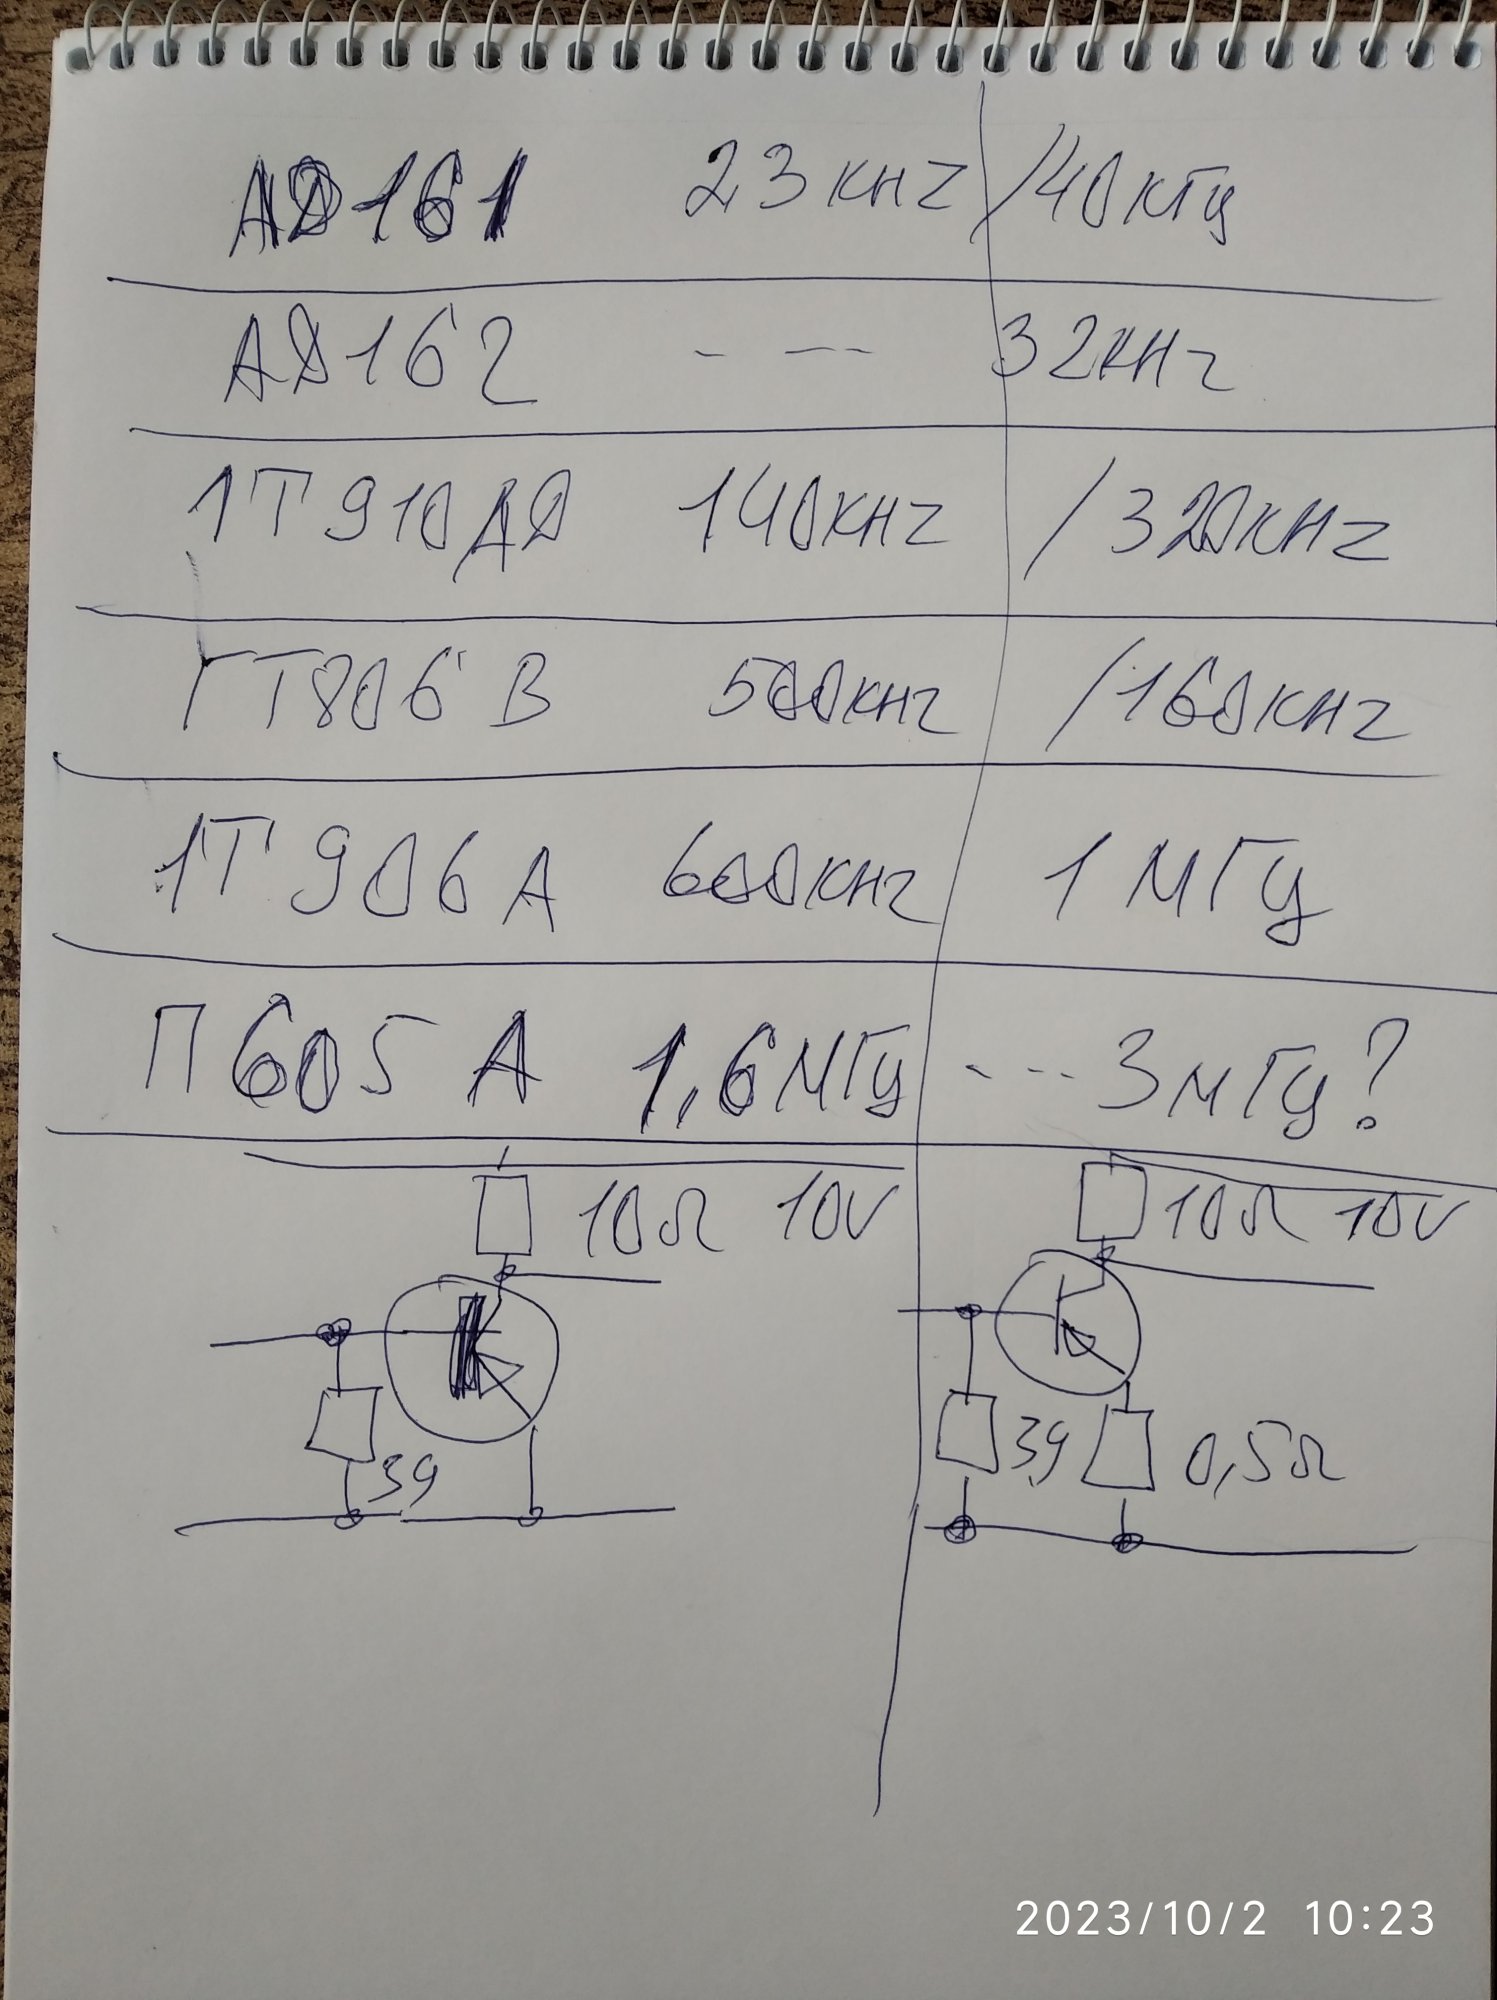 AD161 23кHz /40кГц
AD162 - -- 32кHz
1T910АД 140кHz /320кHz
ГТ806В 500кHz /160кHz
1Т906А 600кHz 1МГц
П605А 1,6МГц --- 3мГц?
10Ω 10V 10Ω 10V
39 39 0,5Ω
2023/10/2 10:23